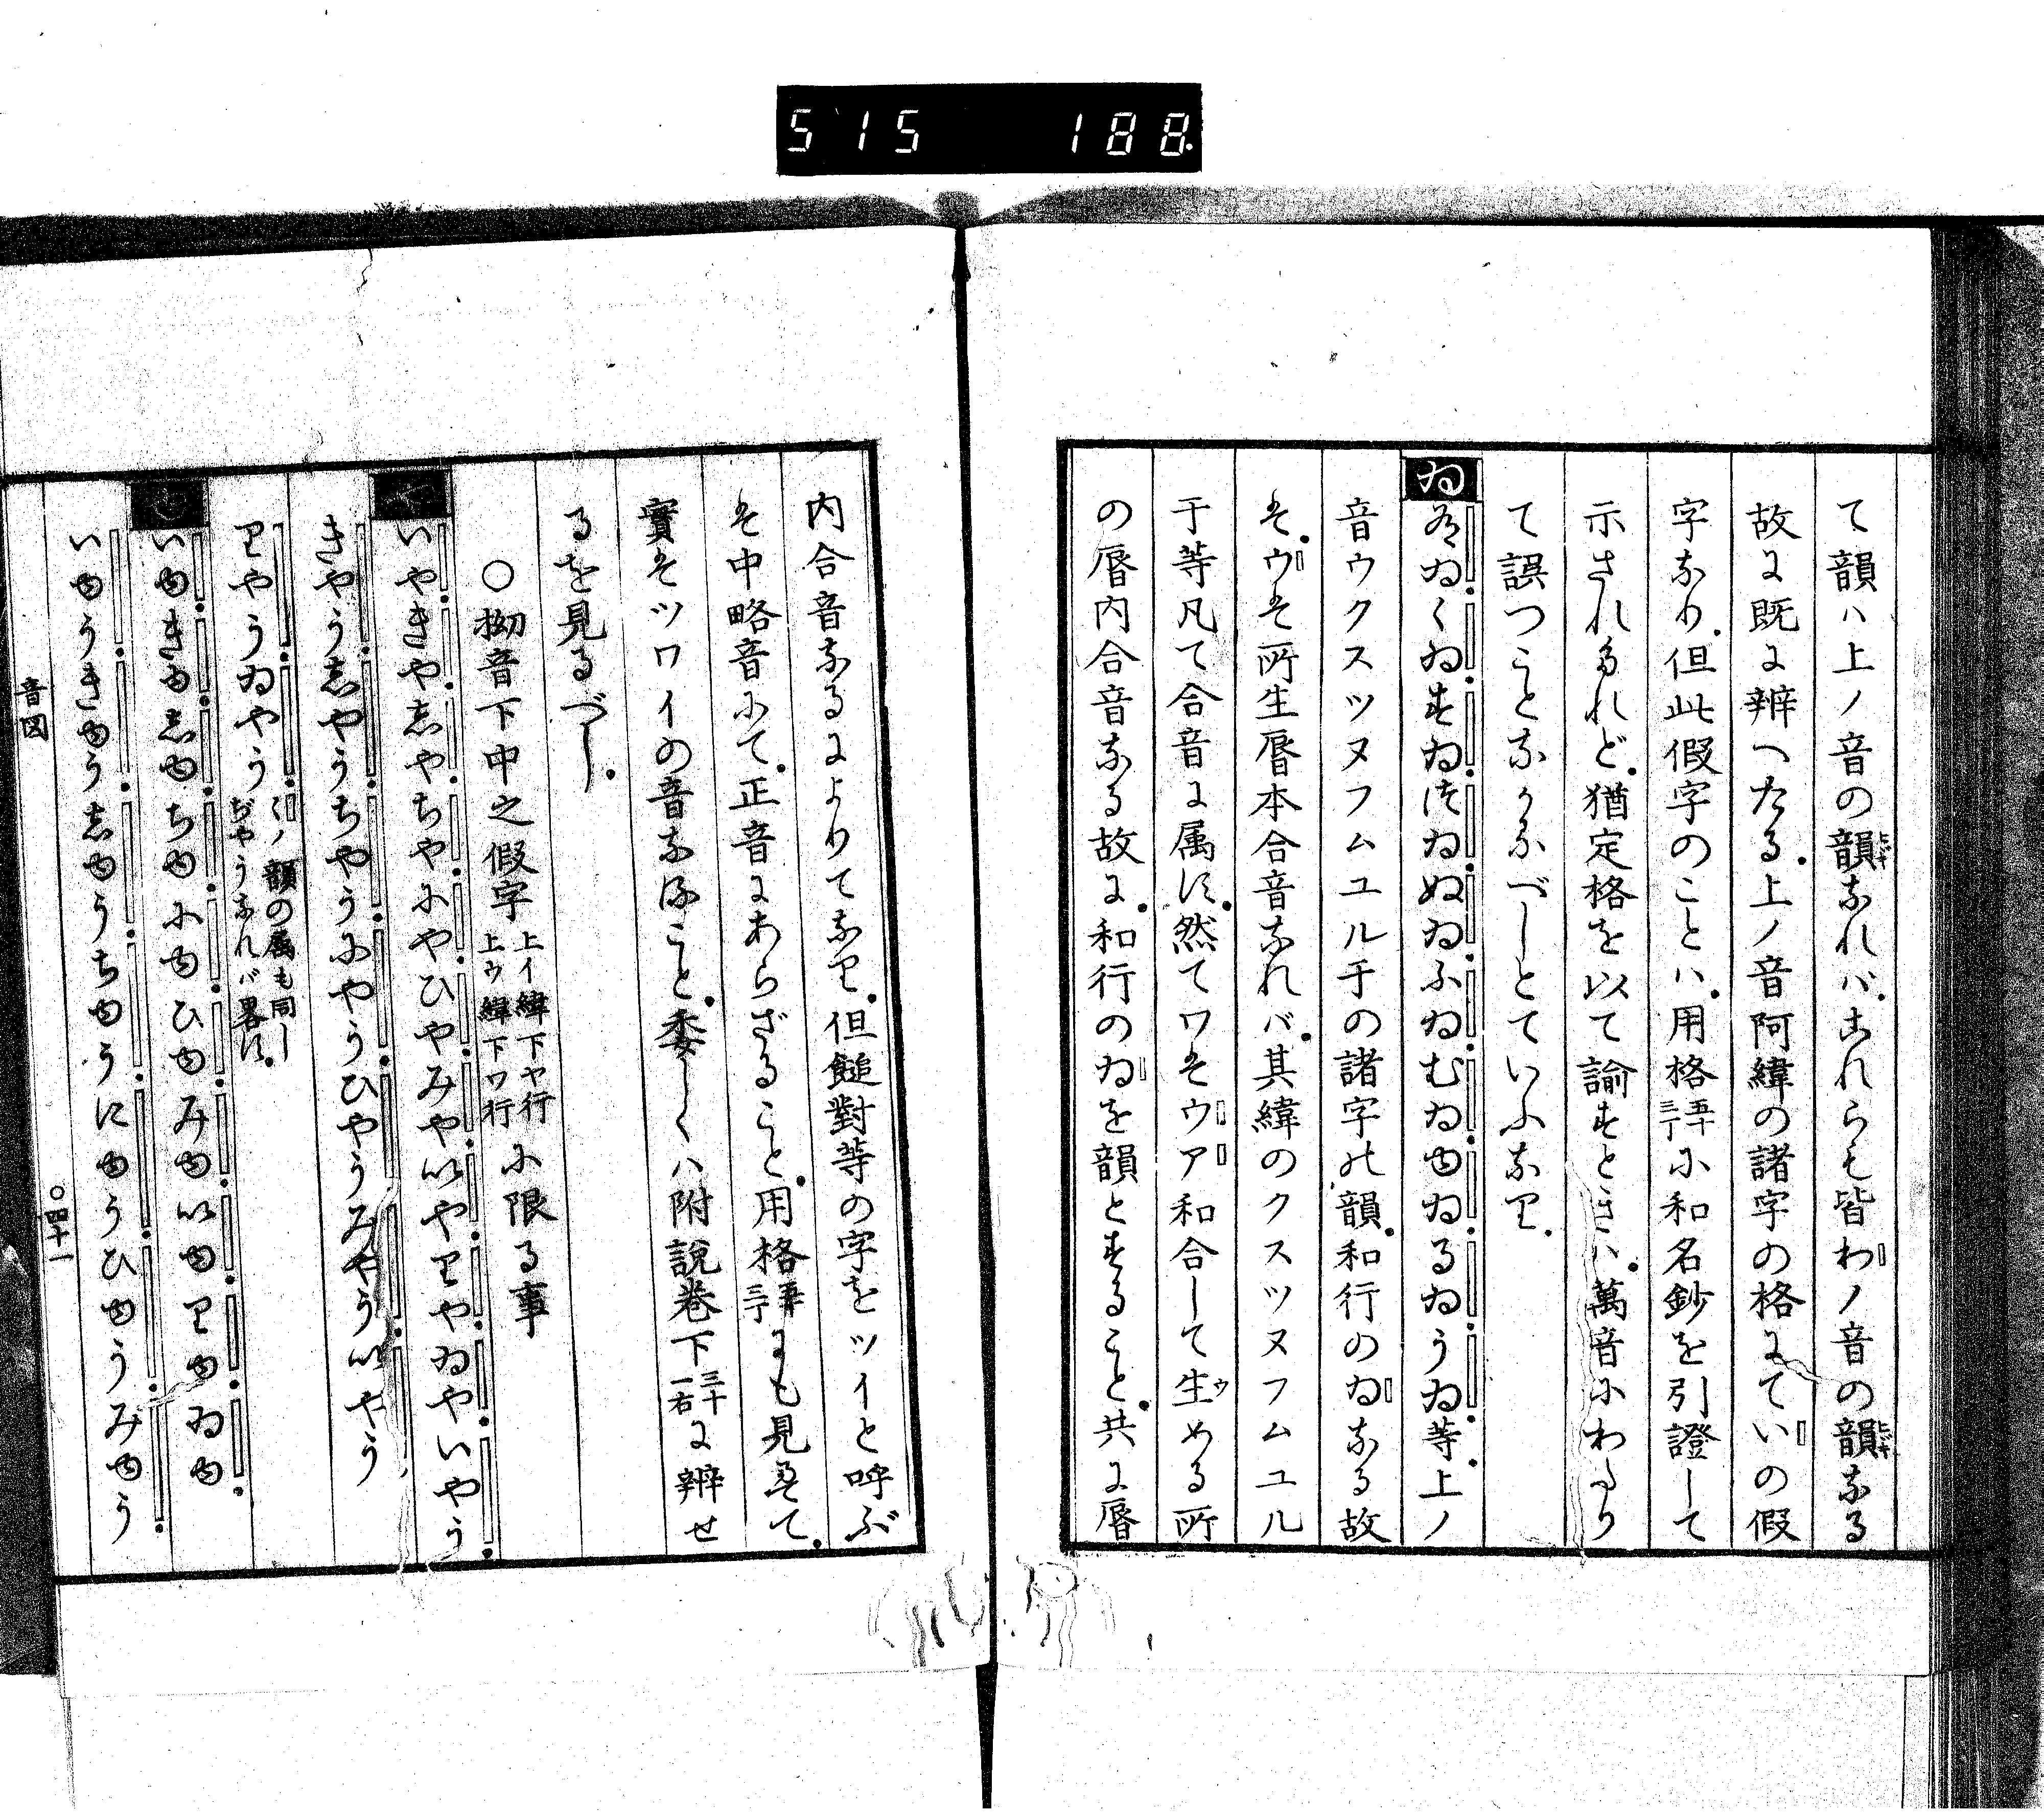 515 188
て韻ハ上ノ音の韻なれバ.これらも皆わノ音の韻なる
故に既に辨へたる.上ノ音阿緯の諸字の格にていの假
字なり.但此假字のことハ.用格五十三丁に和名鈔を引證して
示されたれど.猶定格を以て諭すときハ.萬音にわたり
て誤つことなかるべしとていふなり.
ゐ
ゐ.くゐ.すゐ.つゐ.ぬゐ.ふゐ.むゐ.ゆゐ.るゐ.うゐ.等上ノ
音ウクスツヌフムユル于の諸字の韻.和行のゐなる故
そ.ウそ所生脣本合音なれバ.其緯のクスツヌフムユル
于等凡て合音に属す.然てワそウア和合して生める所
の脣内合音なる故に.和行のゐを韻とすること.共に脣
内合音なるによりてなり.但鎚對等の字をツイと呼ぶ
そ中略音にて.正音にあらざること.用格三丁にも見えて.
實そツワイの音なること.委しくハ附說卷下三十一右に辨せ
るを見るべし.
○拗音下中之假字上イ緯下ヤ行上ウ緯下ワ行に限る事
や
いやきや.しやちやにやひやみやいやりやゐやいやう
きやうしやうちやうにやうひやうみやういやう
りやうゐやうくノ韻の属も同しぢやうなれバ畧す.
ゆ
いゆきゆしゆちゆにゆひゆみゆいゆりゆゐゆ
いゆうきゆうしゆうちゆうにゆうひゆうみゆう
音図
○四十一